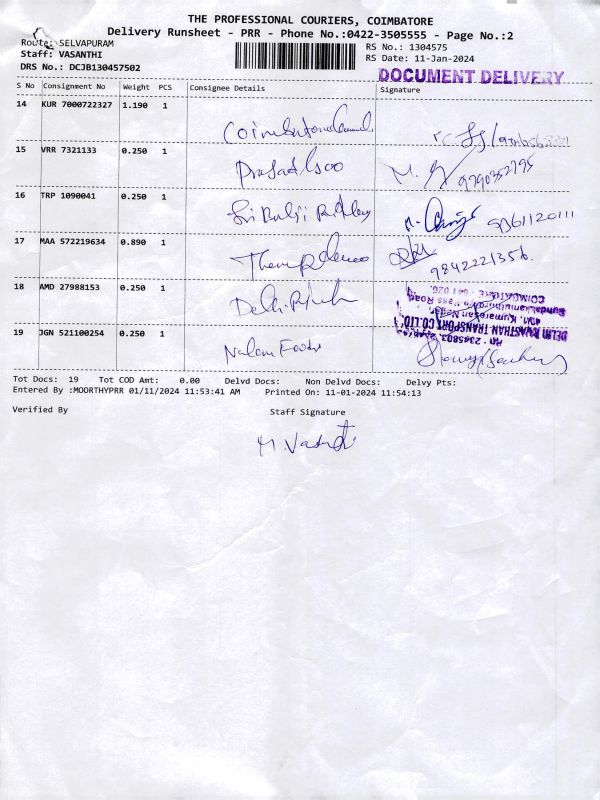 THE PROFESSIONAL COURIERS, COIMBATORE
Delivery Runsheet - PRR - Phone No.:0422-3505555 - Page No.:2
Route: SELVAPURAM
Staff: VASANTHI
DRS No.: DCJB130457502
RS No.: 1304575
RS Date: 11-Jan-2024
DOCUMENT DELIVERY
S No Consignment No Weight PCS Consignee Details Signature
14 KUR 7000722327 1.190 1
15 VRR 7321133 0.250 1
9790352795
16 TRP 1090041 0.250 1
9361120111
17 MAA 572219634 0.890 1
9842221356.
18 AMD 27988153 0.250 1
DELHI RAJASTHAN TRANSPORT CO.LTD
COIMBATORE - 641 026.
19 JGN 521100254 0.250 1 Nalam Foods
Tot Docs: 19 Tot COD Amt: 0.00 Delvd Docs: Non Delvd Docs: Delvy Pts:
Entered By :MOORTHYPRR 01/11/2024 11:53:41 AM Printed On: 11-01-2024 11:54:13
Verified By Staff Signature
M. Vasanthi